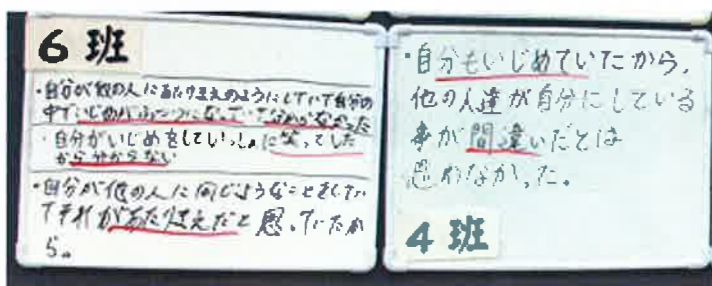 6班
・自分が他の人にあたりまえのようにしていて自分の
中でいじめがふつうになっていて分からなかった
・自分がいじめをしていっしょに笑ってした
から分からない
・自分が他の人に同じようなことをしてい
てそれがあたりまえだと思っていたか
ら。
・自分もいじめていたから、
他の人達が自分にしている
事が間違いだとは
思わなかった。
4班